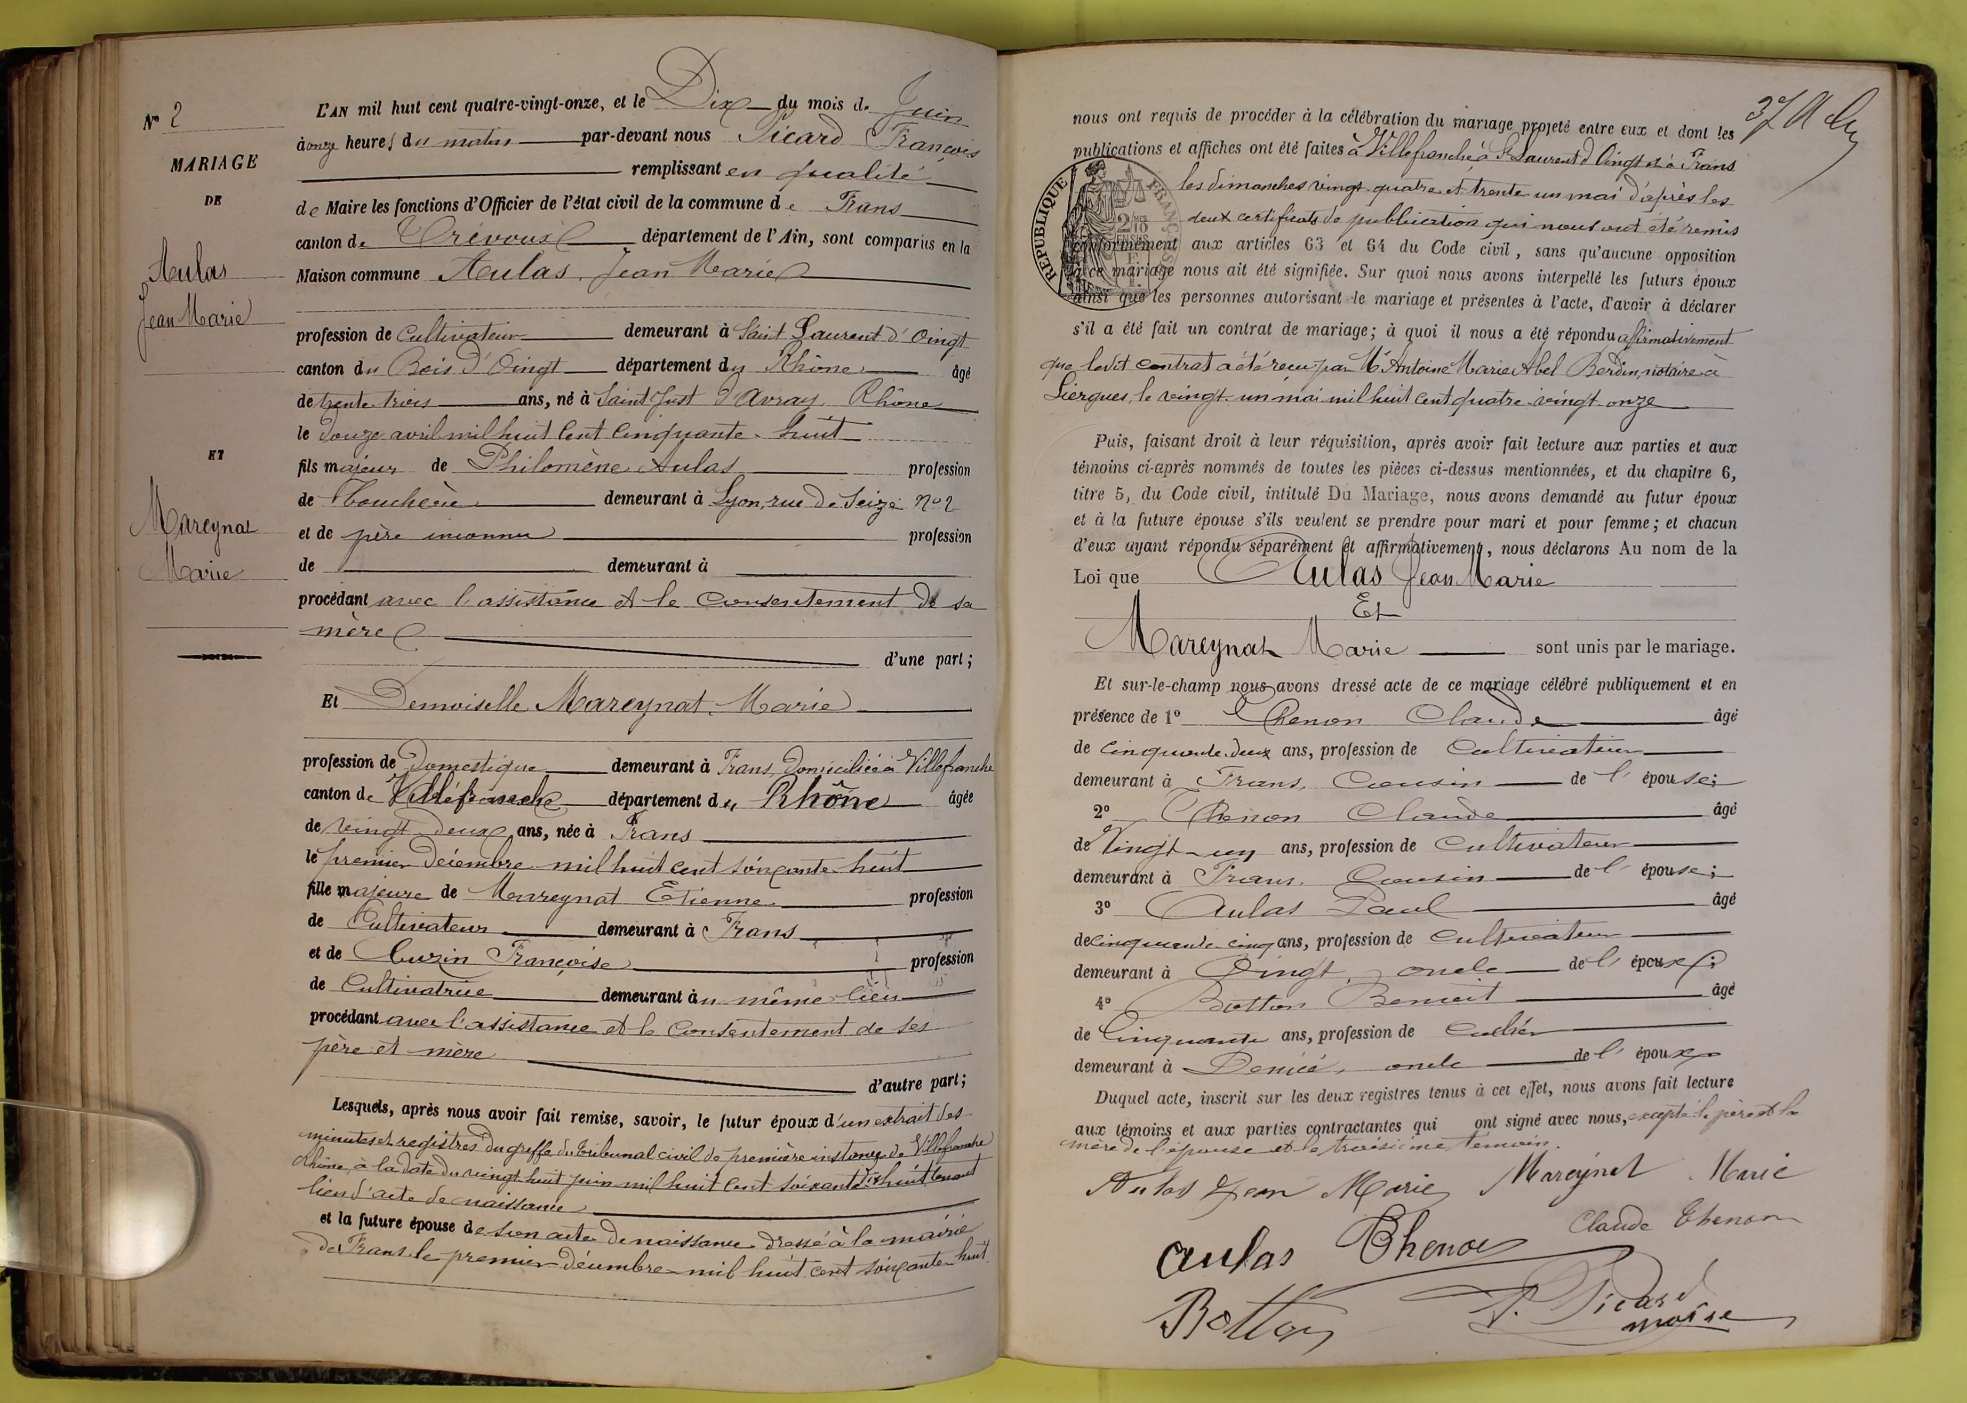 N° 2
MARIAGE
DE
Aulas
Jean Marie
ET
Mareynat
Marie
L'AN mil huit cent quatre-vingt-onze, et le Dix du mois de Juin
à onze heures du matin par-devant nous Picard François
remplissant en qualité
de Maire les fonctions d'Officier de l'état civil de la commune de Frans
canton de Trévoux département de l'Ain, sont comparus en la
Maison commune Aulas Jean Marie
profession de Cultivateur demeurant à Saint Laurent d'Oingt
canton du Bois d'Oingt département du Rhône âgé
de trente trois ans, né à Saint Just d'Avray Rhône
le douze avril mil huit cent cinquante-huit
fils majeur de Philomène Aulas profession
de demeurant à Lyon, rue de Sèize N° 2
et de père inconnu profession
de demeurant à
procédant avec l'assistance et le consentement de sa
mère
d'une part;
Et Demoiselle Mareynat Marie
profession de Domestique demeurant à Frans, domiciliée à Villefranche
canton de Villefranche département du Rhône âgée
de vingt-deux ans, née à Frans
le premier décembre mil huit cent soixante-huit
fille majeure de Mareynat Etienne profession
de Cultivateur demeurant à Frans
et de Cuzin Françoise profession
de Cultivatrice demeurant au même lieu
procédant avec l'assistance et le consentement de ses
père et mère
d'autre part;
Lesquels, après nous avoir fait remise, savoir, le futur époux d'un extrait des
minutes et registres du greffe du tribunal civil de première instance de Villefranche
Rhône, à la date du vingt huit juin mil huit cent soixante dix huit tenant
lieu d'acte de naissance
et la future épouse de son acte de naissance dressé à la mairie
de Frans le premier décembre mil huit cent soixante-huit
37
nous ont requis de procéder à la célébration du mariage projeté entre eux et dont les
publications et affiches ont été faites à Villefranche, à St Laurent d'Oingt et à Frans
les dimanches vingt-quatre et trente un mai d'après les
deux certificats de publication qui nous ont été remis
RÉPUBLIQUE FRANÇAISE
conformément aux articles 63 et 64 du Code civil, sans qu'aucune opposition
à ce mariage nous ait été signifiée. Sur quoi nous avons interpellé les futurs époux
ainsi que les personnes autorisant le mariage et présentes à l'acte, d'avoir à déclarer
s'il a été fait un contrat de mariage; à quoi il nous a été répondu affirmativement
que ledit contrat a été reçu par Me Antoine Marie Abel Berdin, notaire à
Liergues, le vingt-un mai mil huit cent quatre-vingt-onze
Puis, faisant droit à leur réquisition, après avoir fait lecture aux parties et aux
témoins ci-après nommés de toutes les pièces ci-dessus mentionnées, et du chapitre 6,
titre 5, du Code civil, intitulé Du Mariage, nous avons demandé au futur époux
et à la future épouse s'ils veulent se prendre pour mari et pour femme; et chacun
d'eux ayant répondu séparément et affirmativement, nous déclarons Au nom de la
Loi que Aulas Jean Marie
Et
Mareynat Marie sont unis par le mariage.
Et sur-le-champ nous avons dressé acte de ce mariage célébré publiquement et en
présence de 1° Thenon Claude âgé
de cinquante-deux ans, profession de Cultivateur
demeurant à Frans, Cousin de l'épouse;
2° Thenon Claude âgé
de Vingt-un ans, profession de Cultivateur
demeurant à Frans, Cousin de l'épouse;
3° Aulas Paul âgé
de cinquante cinq ans, profession de Cultivateur
demeurant à Oingt, oncle de l'époux;
4° Botton Benoit âgé
de Cinquante ans, profession de
demeurant à Denicé, oncle de l'époux
Duquel acte, inscrit sur les deux registres tenus à cet effet, nous avons fait lecture
aux témoins et aux parties contractantes qui ont signé avec nous, excepté le père et la
mère de l'épouse et le troisième témoin.
Aulas Jean Marie Mareynat Marie
Aulas Thenon Claude Thenon
Botton P. Picard
maire